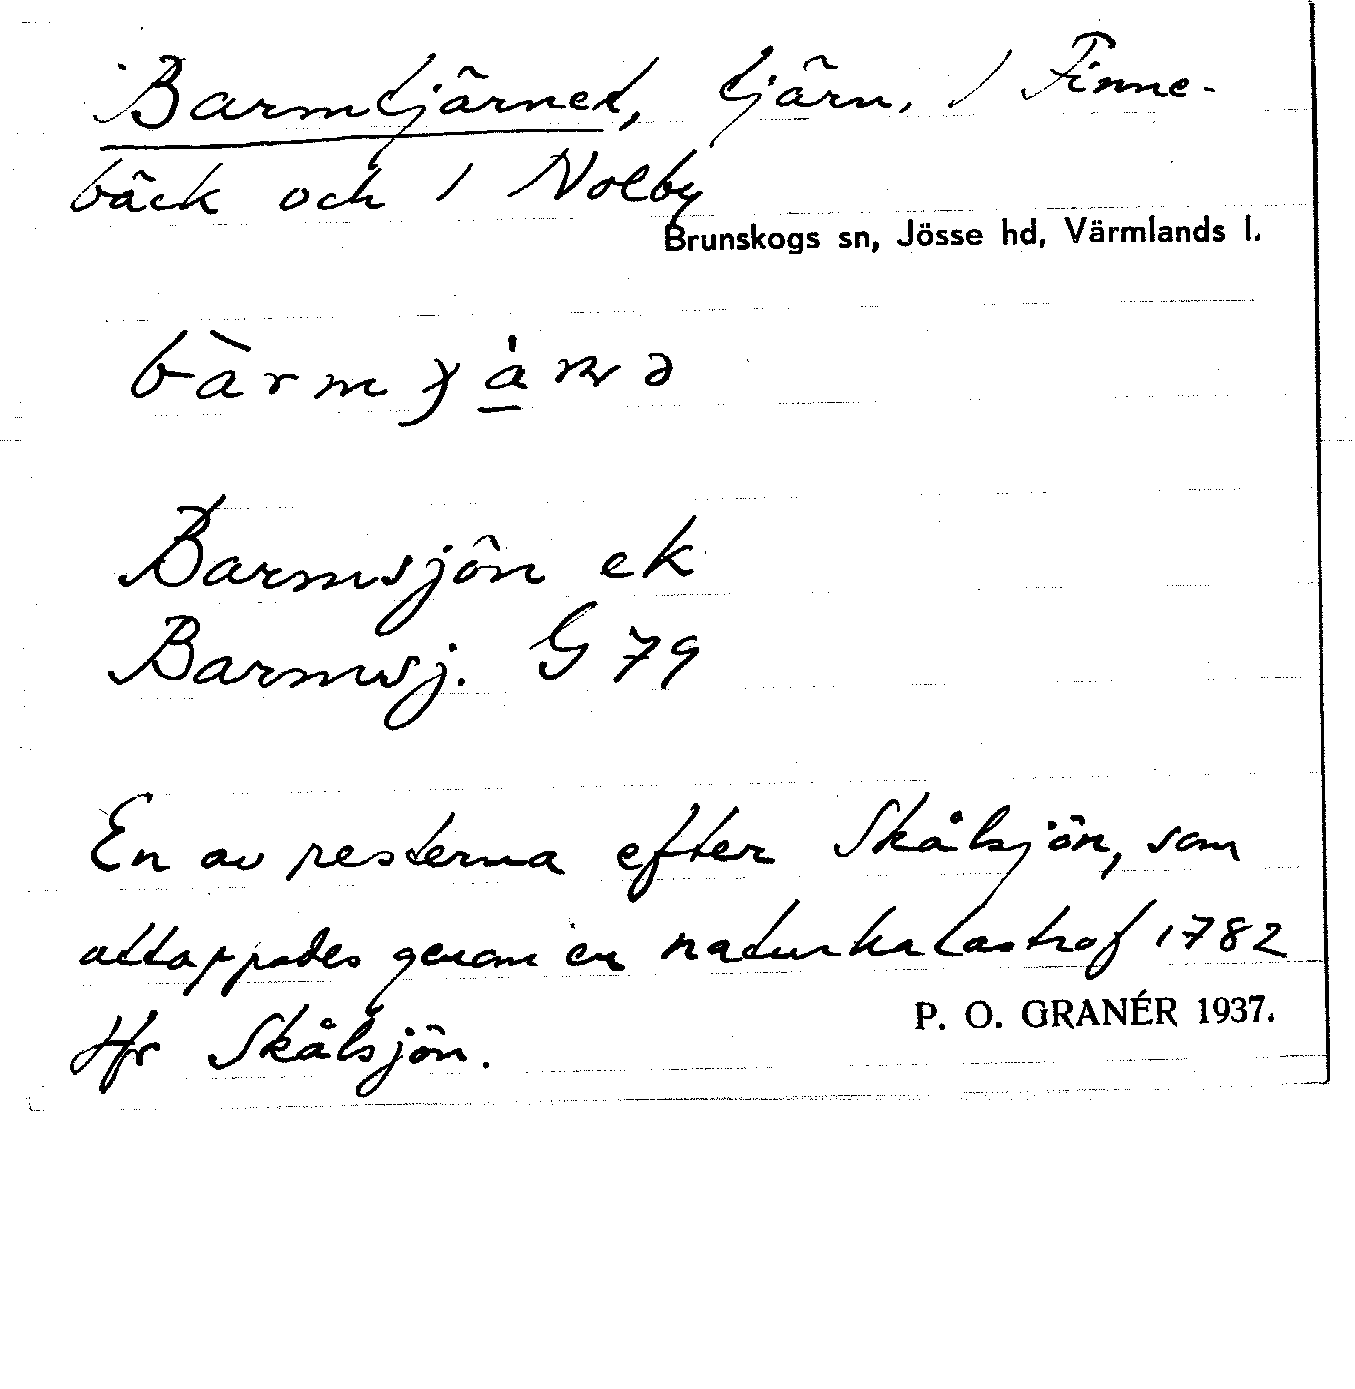 Barmtjärnet, tjärn, 1 Finne-
bäck och 1 Nolby
Brunskogs sn, Jösse hd, Värmlands l.
Barmsjön ek
Barmsj. G 79
En av resterna efter Skålsjön, som
avtappades genom en naturkatastrof 1782
Jfr Skålsjön.
P. O. GRANÉR 1937.